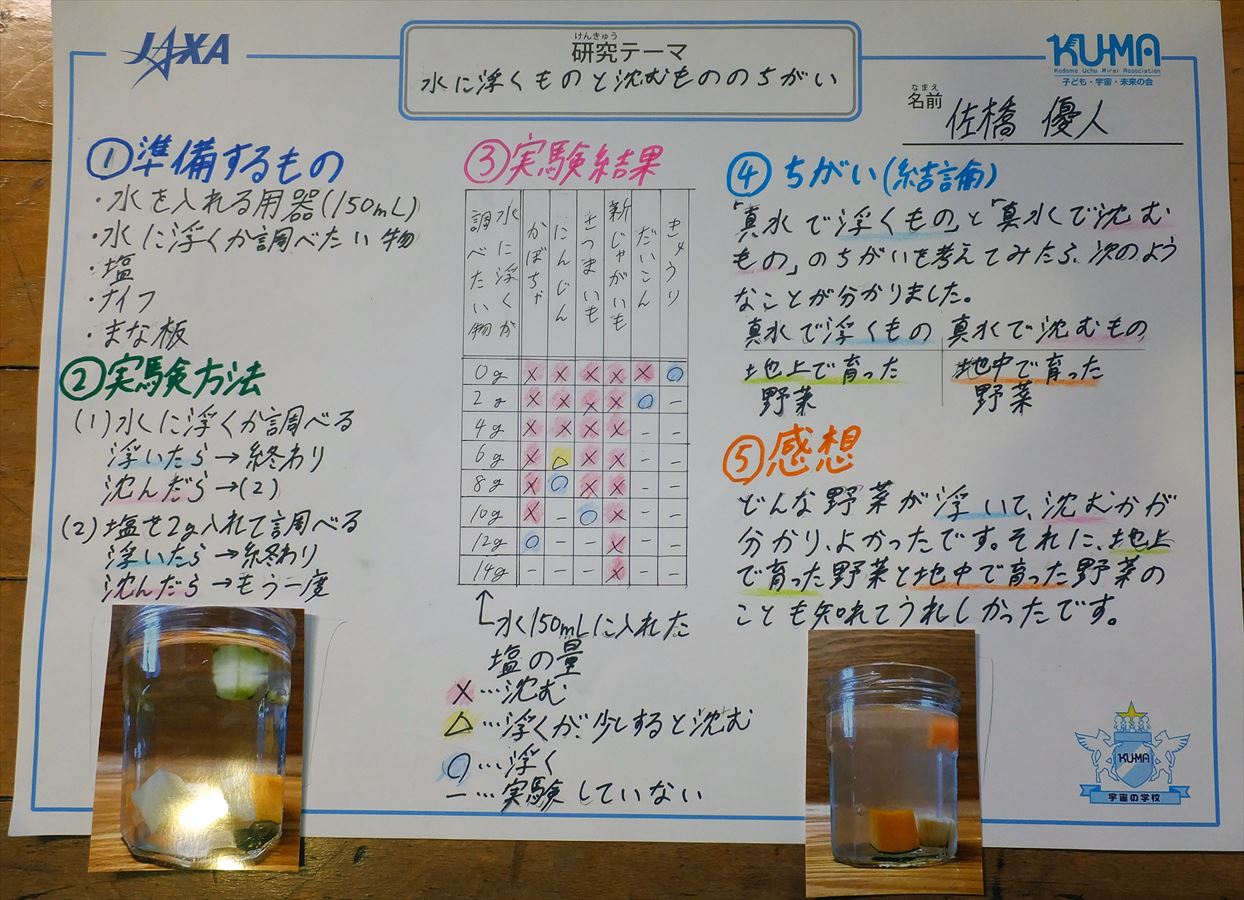 JAXA
けんきゅう
研究テーマ
水に浮くものと沈むもののちがい
KU-MA
Kodomo Uchu Mirai Association
子ども・宇宙・未来の会
なまえ
名前 佐橋 優人
①準備するもの
・水を入れる用器(150mL)
・水に浮くか調べたい物
・塩
・ナイフ
・まな板
②実験方法
(1)水に浮くか調べる
浮いたら→終わり
沈んだら→(2)
(2)塩を2g入れて調べる
浮いたら→終わり
沈んだら→もう一度
③実験結果
水に浮くか
調べたい物
かぼちゃ
にんじん
さつまいも
新じゃがいも
だいこん
きゅうり
0g × × × × × ○
2g × × × × ○ −
4g × × × × − −
6g × △ × × − −
8g × ○ × × − −
10g × − ○ × − −
12g ○ − − × − −
14g − − − × − −
水150mLに入れた
塩の量
×…沈む
△…浮くが、少しすると沈む
○…浮く
−…実験していない
④ちがい(結論)
「真水で浮くもの」と「真水で沈む
もの」のちがいを考えてみたら、次のよう
なことが分かりました。
真水で浮くもの 真水で沈むもの
地上で育った 地中で育った
野菜 野菜
⑤感想
どんな野菜が浮いて、沈むかが
分かり、よかったです。それに、地上
で育った野菜と地中で育った野菜の
ことも知れてうれしかったです。
KU-MA
宇宙の学校